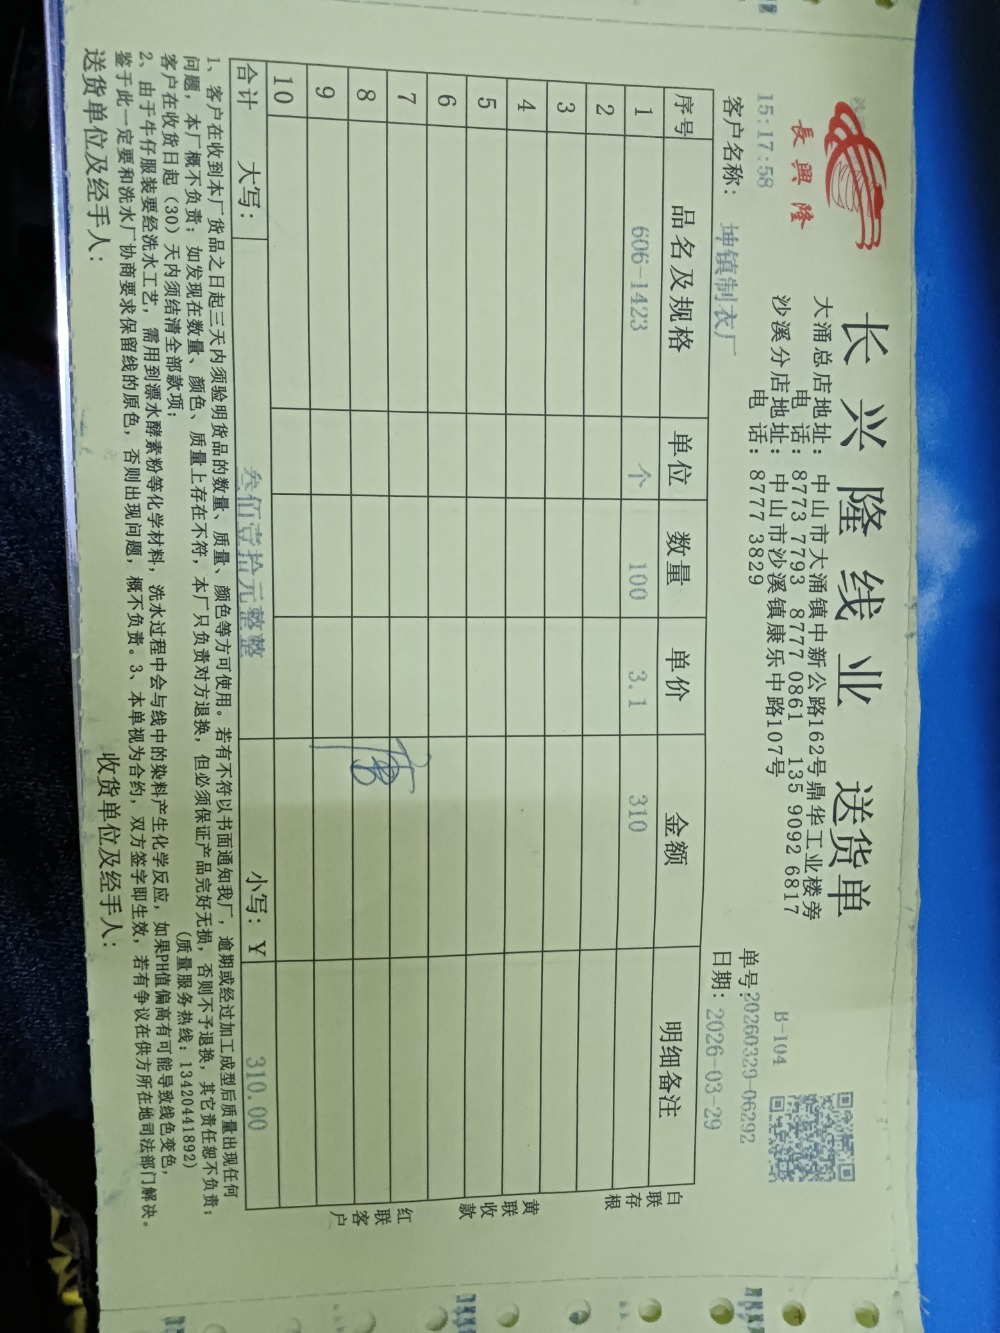 長興隆
长兴隆线业 送货单
大涌总店地址：中山市大涌镇中新公路162号鼎华工业楼旁
电 话：8773 7793 8777 0861 135 9092 6817
沙溪分店地址：中山市沙溪镇康乐中路107号
电 话：8777 3829
B-104
15:17:58
单号：20260329-06292
客户名称：坤镇制衣厂
日期：2026-03-29
序号 品名及规格 单位 数量 单价 金额 明细备注
1 606-1423 个 100 3.1 310
2
3
4
5
6
7
8
9
10
合计 大写：叁佰壹拾元整整 小写：¥ 310.00
白联存根
黄联收款
红联客户
1、客户在收到本厂货品之日起三天内须验明货品的数量、质量、颜色等方可使用。若有不符以书面通知我厂，逾期或经过加工成型后质量出现任何
问题，本厂概不负责；如发现在数量、颜色、质量上存在不符，本厂只负责对方退换，但必须保证产品完好无损，否则不予退换，其它责任恕不负责；
客户在收货日起（30）天内须结清全部款项； （质量服务热线：13420441892）
2、由于牛仔服装要经洗水工艺，需用到漂水酵素粉等化学材料，洗水过程中会与线中的染料产生化学反应，如果PH值偏高有可能导致线色变色，
鉴于此一定要和洗水厂协商要求保留线的原色，否则出现问题，概不负责。3、本单视为合约，双方签字即生效，若有争议在供方所在地司法部门解决。
送货单位及经手人： 收货单位及经手人：